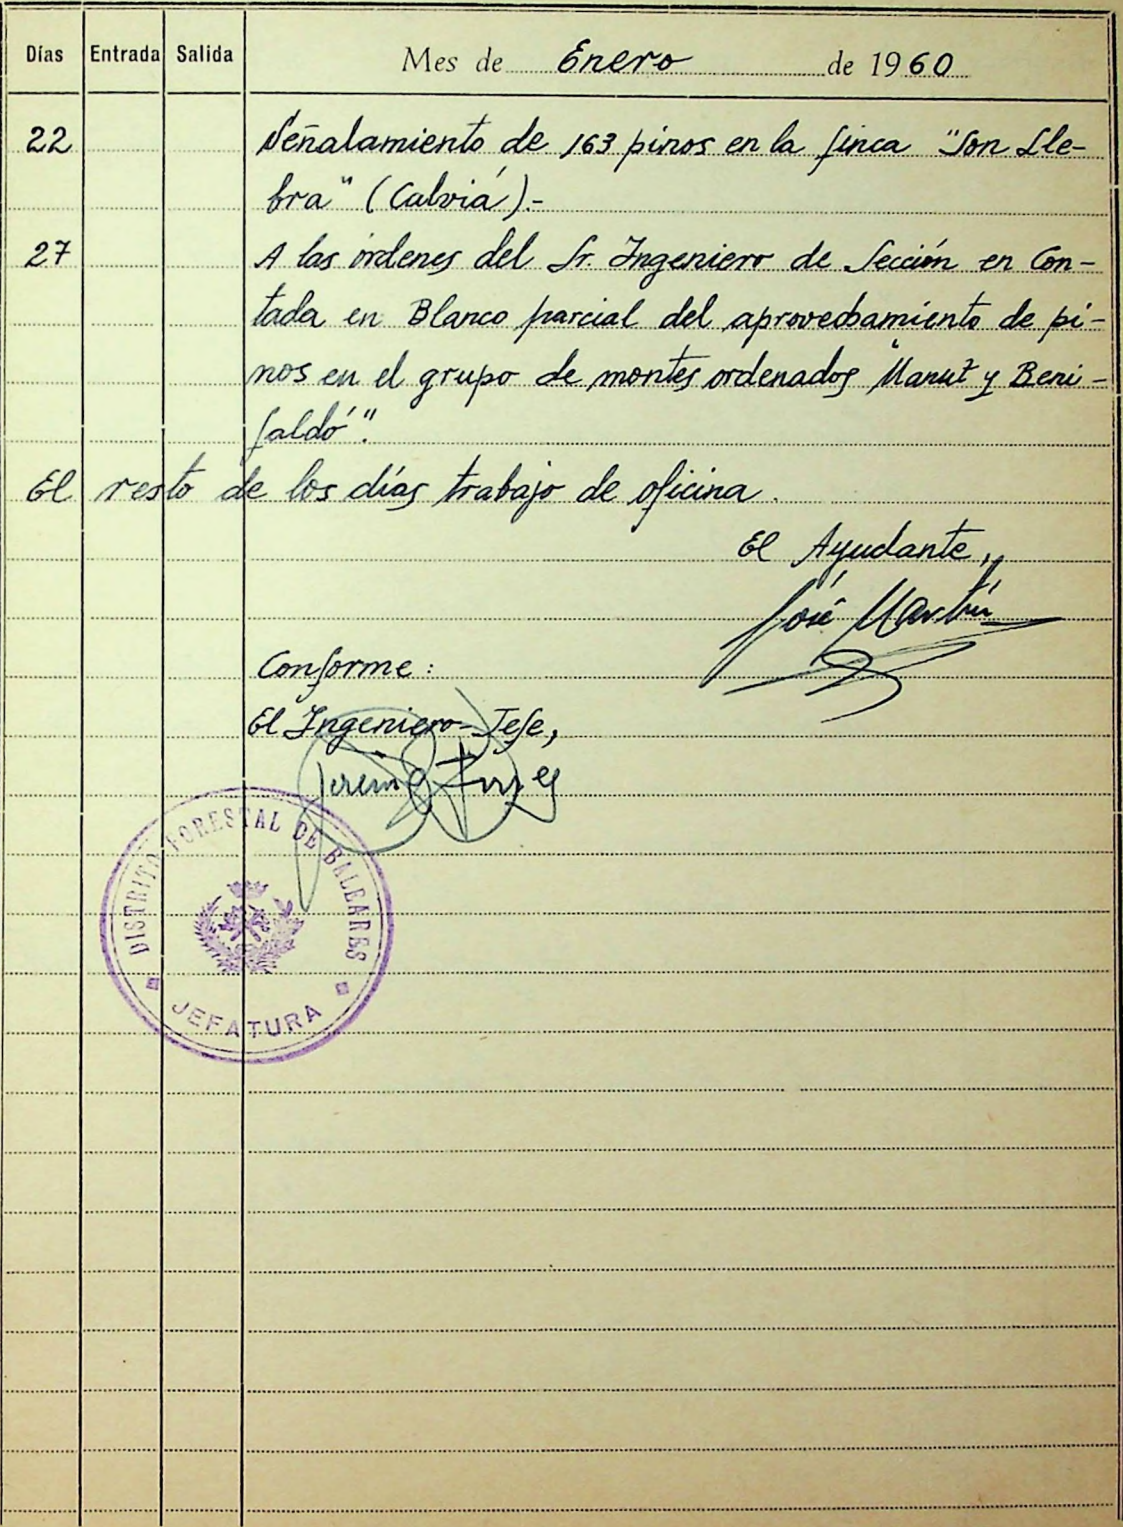 Días Entrada Salida Mes de Enero de 1960
22 Señalamiento de 163 pinos en la finca "Son Lle-
bra" (Calviá).-
27 A las órdenes del Sr. Ingeniero de Sección en Con-
tada en Blanco parcial del aprovechamiento de pi-
nos en el grupo de montes ordenados "Manut y Beni-
faldó".
El resto de los días trabajo de oficina.
El Ayudante,
José Martín
Conforme:
El Ingeniero-Jefe,
DISTRITO FORESTAL DE BALEARES
JEFATURA